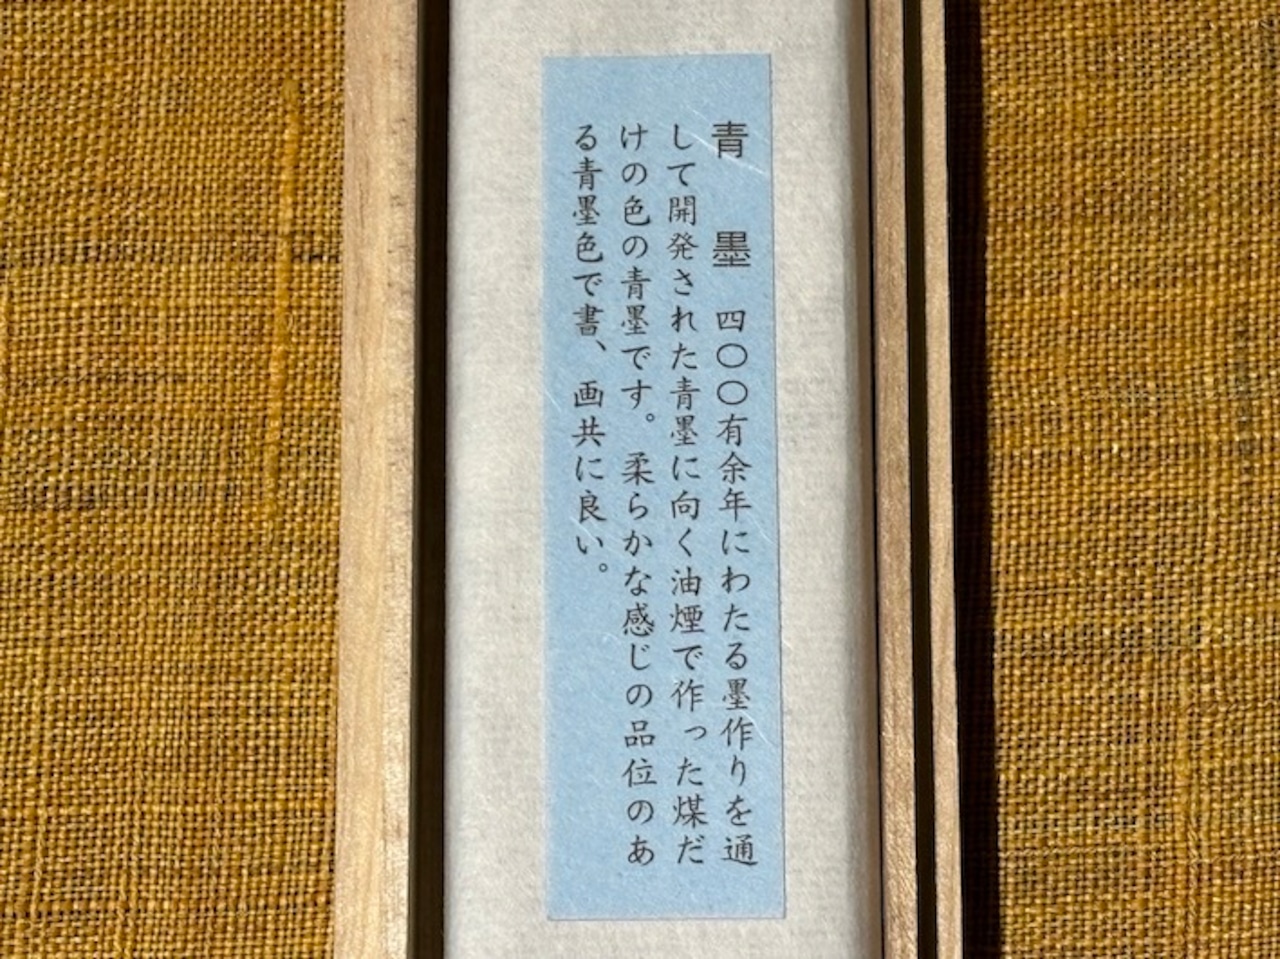 青 墨 四〇〇有余年にわたる墨作りを通
して開発された青墨に向く油煙で作った煤だ
けの色の青墨です。柔らかな感じの品位のあ
る青墨色で書、画共に良い。